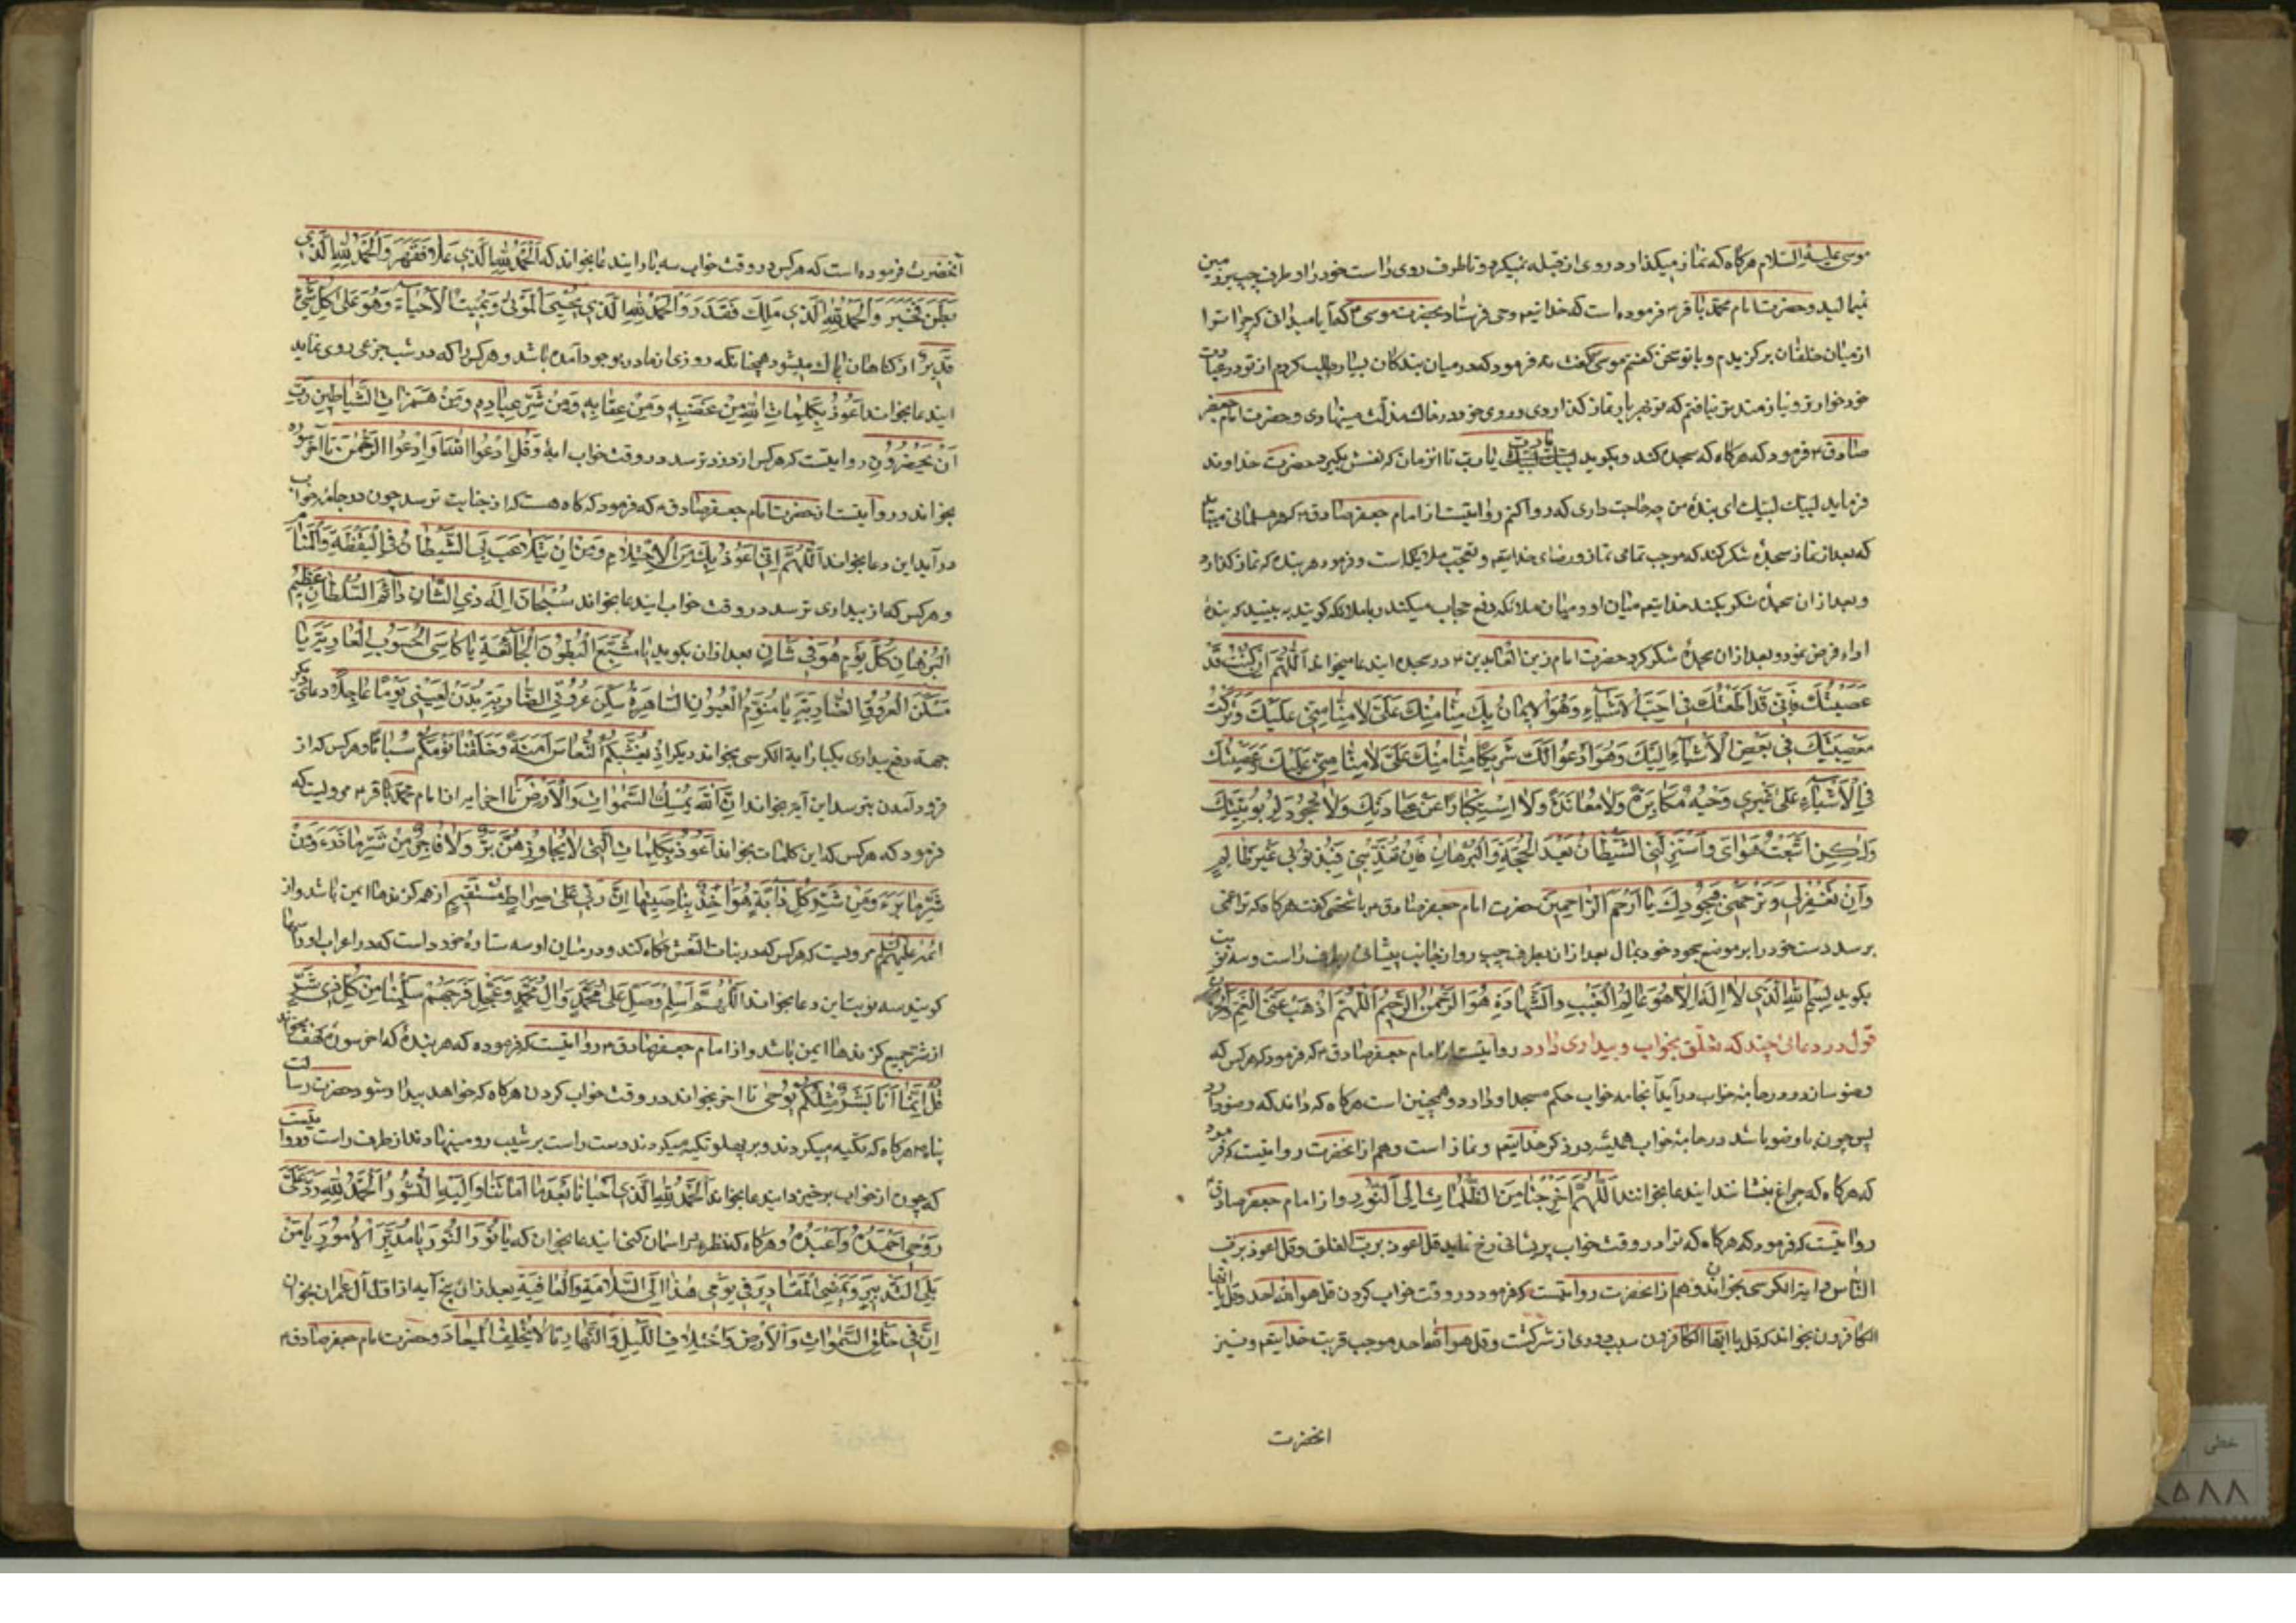 موسی علیه السلام هرکاه که نماز میکذارد روی از قبله نمیکرد و تا طرف روی راست خود را و طرف چپ بر زمین
نمیمالید و حضرت امام محمد باقر ع فرموده است که خدایتع وحی فرستاد بحضرت موسی ع که آیا میدانی که چرا ترا
از میان خلقان برکزیدم و با تو سخن کفتم موسی کفت نه فرمود که در میان بندکان بسیار طلب کردم از تو در عبادت
خود خوارتر و نیازمندتر نیافتم که تو هر بار نماز کذاردی و روی خود در خاک مذلت مینهادی و حضرت امام جعفر
صادق ع فرمود که هرکاه که سجده کند و بکوید یا رب یا رب تا انزمان که نفس بکیرد حضرت خداوند
فرماید لبیک لبیک ای بنده من چه حاجت داری که روا کنم روایتست از امام جعفر صادق ع که هر مسلمانی میباید
که بعد از نماز سجده شکر کند که موجب تمامی نماز و رضای خدایتع و تعجب ملایکه است و فرمود هر بنده که نماز کذارد
و بعد از ان سجده شکر بکند خدایتع میان او و میان ملائکه رفع حجاب میکند و با ملائکه کوید به بینید که بنده
اداء فرض نمود و بعد از ان سجده شکر کرد حضرت امام زین العابدین ع در سجده ایندعا میخواند اَللّٰهُمَّ اِنْ کُنْتُ قَدْ
عَصَیْتُکَ فَاِنّی قَدْ اَطَعْتُکَ فی اَحَبِّ الْاَشْیَاءِ وَهُوَ الْاِیمَانُ بِکَ مَنًّا مِنْکَ عَلَیَّ لَا مَنًّا مِنّی عَلَیْکَ وَتَرَکْتُ
مَعْصِیَتَکَ فی بَعْضِ الْاَشْیَاءِ اِلَیْکَ وَهُوَ اَدْعُوا لَکَ شَرِیکًا مَنًّا مِنْکَ عَلَیَّ لَا مَنًّا مِنّی عَلَیْکَ وَعَصَیْتُکَ
فِی الْاَشْیَاءِ عَلٰی غَیْرِ وَجْهِ مُکَابَرَةٍ وَلَا مُعَانَدَةٍ وَلَا اسْتِکْبَارًا عَنْ عِبَادَتِکَ وَلَا جُحُودٍ لِرُبُوبِیَّتِکَ
وَلٰکِنِ اتَّبَعْتُ هَوَایَ وَاَسْتَزَلَّنِی الشَّیْطَانُ بَعْدَ الْحُجَّةِ وَالْبُرْهَانِ فَاِنْ تُعَذِّبْنی فَبِذُنُوبی غَیْرَ ظَالِمٍ
وَاِنْ تَغْفِرْ لی وَتَرْحَمْنی فَبِجُودِکَ یَا اَرْحَمَ الرَّاحِمینَ حضرت امام جعفر صادق ع با شخصی کفت هرکاه که ترا غمی
برسد دست خود را بر موضع سجود خود بمال بعد از ان بطرف چپ رو از جانب پیشانی بطرف راست و سه نوبت
بکوید بِسْمِ اللهِ الَّذی لَا اِلٰهَ اِلَّا هُوَ عَالِمُ الْغَیْبِ وَالشَّهَادَةِ هُوَ الرَّحْمٰنُ الرَّحِیمُ اَللّٰهُمَّ اَذْهِبْ عَنِّی الْغَمَّ وَالْحُزْنَ
قول در دعائی چند که تعلّق بخواب و بیداری دارد روایتست از امام جعفر صادق ع که فرمود که هرکس که
وضو سازد و در جامهٔ خواب در آید آنجامه خواب حکم مسجد او دارد و همچنین است هرکاه که داند که وضو دارد
پس چون با وضو باشد در جامهٔ خواب همیشه در ذکر خدایتع و نماز است و هم از انحضرت روایتست که فرمود
که هرکاه که چراغ بنشانند ایندعا بخوانند اَللّٰهُمَّ اَخْرِجْنَا مِنَ الظُّلُمَاتِ اِلَی النُّورِ و از امام جعفر صادق
روایتست که فرمود که هرکاه که ترا در وقت خواب پریشانی رخ نماید قل اعوذ برب الفلق و قل اعوذ برب
الناس و ایة الکرسی بخوان و هم از انحضرت روایتست که فرمود در وقت خواب کردن قل هو الله احد و قل یا ایها
الکافرون بخواند که قل یا ایها الکافرون سبب دوری از شرکت و قل هو الله احد موجب قربت خدایتع و نیز
انحضرت
آنحضرت فرموده است که هرکس در وقت خواب سه بار ایندعا بخواند که اَلْحَمْدُ لِلّٰهِ الَّذی عَلَا فَقَهَرَ وَالْحَمْدُ لِلّٰهِ الَّذی
بَطَنَ فَخَبَرَ وَالْحَمْدُ لِلّٰهِ الَّذی مَلَکَ فَقَدَرَ وَالْحَمْدُ لِلّٰهِ الَّذی یُحْیِی الْمَوْتٰی وَیُمیتُ الْاَحْیَاءَ وَهُوَ عَلٰی کُلِّ شَیْءٍ
قَدِیرٌ از کناهان پاک میشود همچنانکه روزی از مادر بوجود آمده باشد و هرکس را که در شب جزعی روی نماید
ایندعا بخواند اَعُوذُ بِکَلِمَاتِ اللهِ مِنْ غَضَبِهِ وَمِنْ عِقَابِهِ وَمِنْ شَرِّ عِبَادِهِ وَمِنْ هَمَزَاتِ الشَّیَاطِینِ رَبِّ
اَنْ یَحْضُرُونِ روایتست که هرکس از دزد ترسد در وقت خواب ایهٔ وَقُلِ ادْعُوا اللهَ اَوِ ادْعُوا الرَّحْمٰنَ تا آخر سوره
بخواند و روایتست از حضرت امام جعفر صادق ع که فرمود که کاه هست که از جنابت ترسد چون در جامهٔ خواب
در آید این دعا بخواند اَللّٰهُمَّ اِنّی اَعُوذُ بِکَ مِنَ الْاِحْتِلَامِ وَمِنْ اَنْ یَتَلَاعَبَ بِیَ الشَّیْطَانُ فِی الْیَقْظَةِ وَالْمَنَامِ
و هرکس که از بیداری ترسد در وقت خواب ایندعا بخواند سُبْحَانَ اللهِ ذِی الشَّانِ دَائِمِ السُّلْطَانِ عَظِیمِ
الْبُرْهَانِ کُلَّ یَوْمٍ هُوَ فی شَانٍ بعد از ان بکوید یَا مُشْبِعَ الْبُطُونِ الْجَائِعَةِ یَا کَاسِیَ الْجُنُوبِ الْعَارِیَةِ یَا
مُسَکِّنَ الْعُرُوقِ الضَّارِبَةِ یَا مُنَوِّمَ الْعُیُونِ السَّاهِرَةِ سَکِّنْ عُرُوقِیَ الضَّارِبَةَ لِعَیْنی نَوْمًا عَاجِلًا و دعای دیکر
جهة دفع بیداری یکبار ایة الکرسی بخواند دیکر اِذْ یُغَشِّیکُمُ النُّعَاسَ اَمَنَةً وَجَعَلْنَا نَوْمَکُمْ سُبَاتًا و هرکس که از
فرود آمدن بترسد این آیه بخواند اِنَّ اللهَ یُمْسِکُ السَّمٰوَاتِ وَالْاَرْضَ تا اخر ایه از امام محمد باقر ع مرویست که
فرمود که هرکس که این کلمات بخواند اَعُوذُ بِکَلِمَاتِ اللهِ الَّتی لَا یُجَاوِزُهُنَّ بَرٌّ وَلَا فَاجِرٌ مِنْ شَرِّ مَا ذَرَءَ وَمِنْ
شَرِّ مَا بَرَءَ وَمِنْ شَرِّ کُلِّ دَابَّةٍ هُوَ اٰخِذٌ بِنَاصِیَتِهَا اِنَّ رَبّی عَلٰی صِرَاطٍ مُسْتَقِیمٍ از همه کزندها ایمن باشد و از
ائمه علیهم السلم مرویست که هرکس که در بنات النعش نکاه کند و در میان او سه ستارهٔ خورد است که در اعراب او را سها
کویند سه نوبت این دعا بخواند اَللّٰهُمَّ صَلِّ عَلٰی مُحَمَّدٍ وَاٰلِ مُحَمَّدٍ وَعَجِّلْ فَرَجَهُمْ سَلِّمْنَا مِنْ کُلِّ ذی شَرٍّ
از شر جمیع کزندها ایمن باشد و از امام جعفر صادق ع روایتست که فرموده که هر بندهٔ که اخر سورهٔ کهف بخواند
قُلْ اِنَّمَا اَنَا بَشَرٌ مِثْلُکُمْ یُوحٰی تا اخر بخواند در وقت خواب کردن هرکاه که خواهد بیدار شود حضرت رسالت
پناه ع هرکاه که تکیه میکردند و بر پهلو تکیه میکردند دست راست بر شیب رو مینهادند از طرف راست و روایتست
که چون از خواب برخیزد ایندعا بخواند اَلْحَمْدُ لِلّٰهِ الَّذی اَحْیَانَا بَعْدَ مَا اَمَاتَنَا وَاِلَیْهِ النُّشُورُ اَلْحَمْدُ لِلّٰهِ رَدَّ عَلَیَّ
رُوحی اَحْمَدُهُ وَاَعْبُدُهُ و هرکاه که نظر بر اسمان کنی ایندعا بخوان که یَا نُورَ النُّورِ یَا مُدَبِّرَ الْاُمُورِ یَا مَنْ
یَلِی التَّدْبِیرَ وَیُمْضِی الْمَقَادِیرَ فی یَوْمی هٰذَا اِلَی السَّلَامَةِ وَالْعَافِیَةِ بعد از ان پنج آیه از اول آل عمران بخوان
اِنَّ فی خَلْقِ السَّمٰوَاتِ وَالْاَرْضِ وَاخْتِلَافِ اللَّیْلِ وَالنَّهَارِ تا لَا تُخْلِفُ الْمِیعَادَ و حضرت امام جعفر صادق ع
خطی
۸۵۸۸